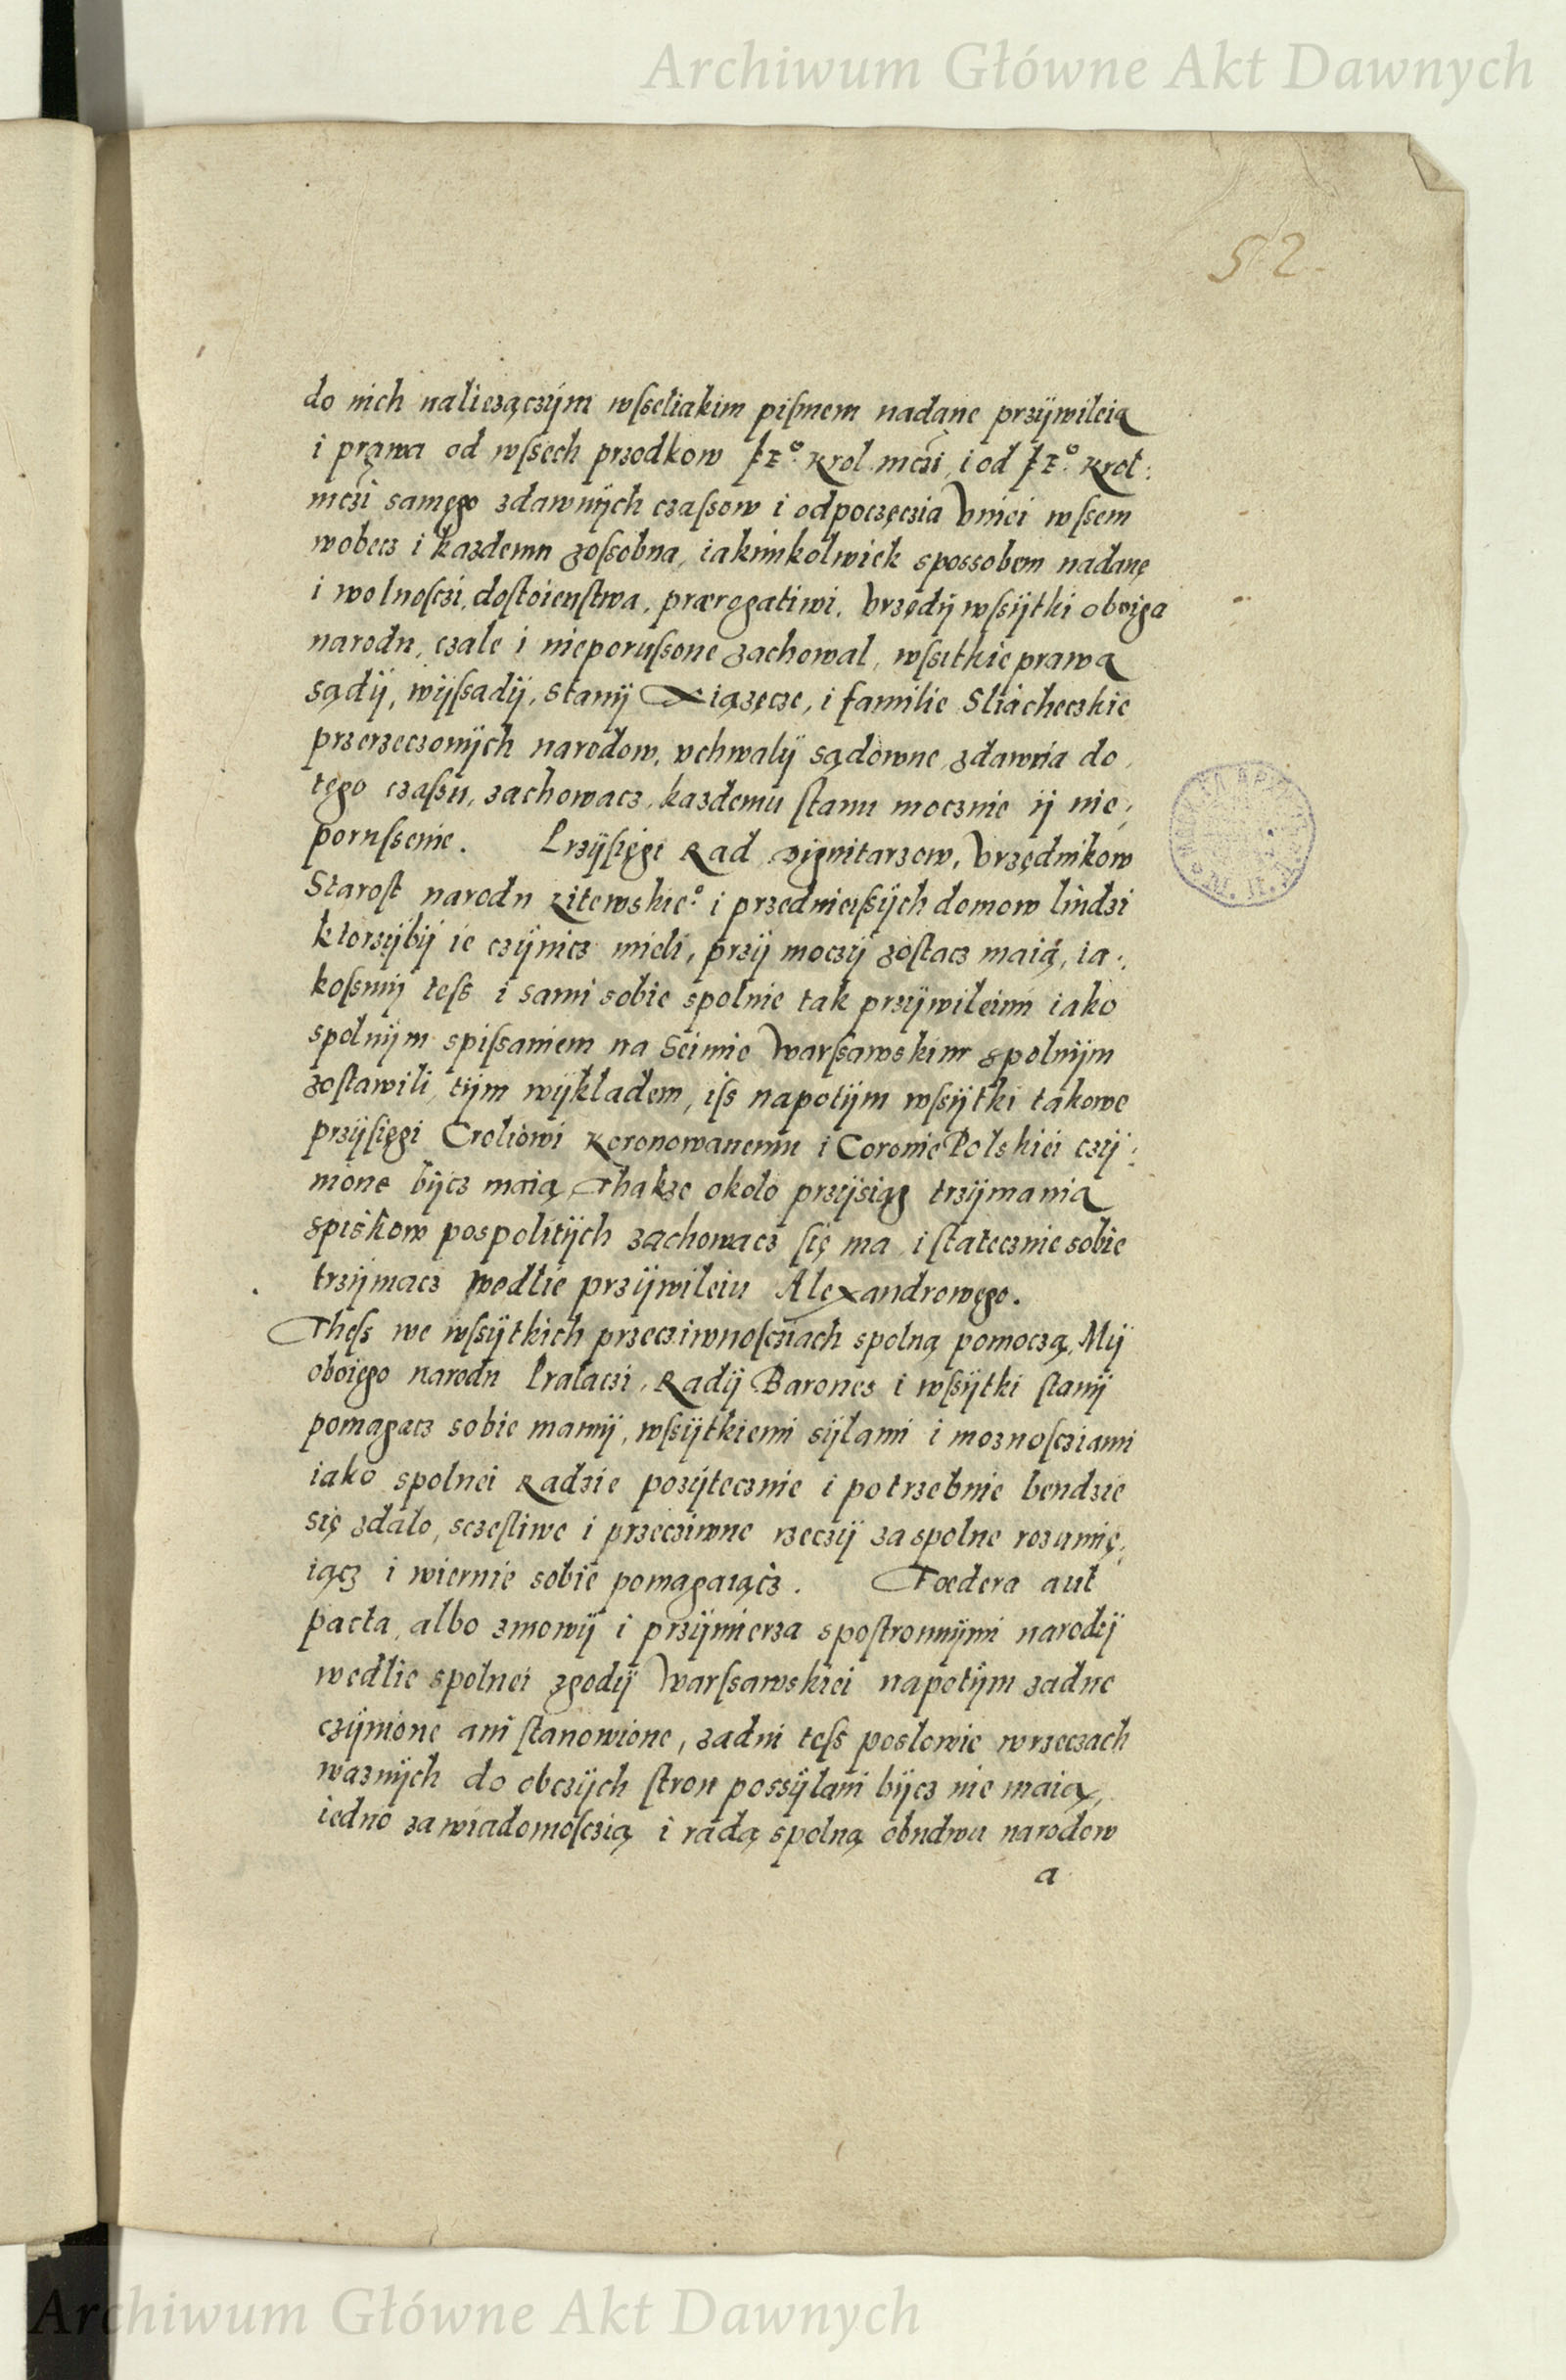 Archiwum Główne Akt Dawnych
52
do nich naliezączijm wſseliakim piſmem nadane przijwileią
i prawa od wſsech przodkow Je⁰ Krol. mczi, i od Je⁰ Krol:
mczi samęgo zdawnijch czaſsow i odpoczęczia Vniei wſsem
wobecz i kazdemu zoſsobna, iakimkolwiek spossobem nadanę
i wolnoſczi, doſtoienſtwa, prærogatiwi, Vrzędij wſsijtki oboiga
narodu, czale i nieporuſsone zachowal, wſsitkie prawa
sądij, wijſsadij, Stanij Xiązęcze, i familie Sliacheczkie
przerzeczonijch narodow, vchwalij sądowne zdawna do
tęgo czaſsu, zachowacz, kazdemu ſtanu mocznie ij nie:
poruſsenie. Przijſięgi Rad Dignitarzow, Vrzędnikow
Staroſt narodu Litewskie⁰ i przednieiſsijch domow liudzi
ktorzijbij ie czijnicz mieli, przij moczij zoſtacz maią, ia:
koſsmij teſs i sami sobie spolnie tak przijwileimi iako
spolnijm spiſsaniem na Seimie Warſsawskim spolnijm
zoſtawili, tijm wijkladem, iſs napotijm wſsijtki takowe
przijſięgi Croliowi Koronowanemu i Coronie Polskiei czij:
nione bijcz maią, Thakze okolo przijsiąg trzijmania
spiskow pospolitijch zachowacz ſię ma i ſtatecznie sobie
trzijmacz wedlie przijwileiu Alexandrowęgo.
Theſs we wſsijtkich przecziwnoſcziach spolną pomoczą, Mij
oboięgo narodu Pralaczi, Radij Barones i wſsijtki ſtanij
pomagacz sobie mamij, wſsijtkiemi sijlami i moznoſcziami
iako spolnei Radzie pozijtecznie i potrzebnie bendzie
się zdalo, sczeſliwe i przecziwne rzeczij za spolne rozumię:
iącz i wiernie sobie pomagaiącz. Fœdera aut
pacta, albo zmowij i przijmierza spoſtronnijmi narodij
wedlie spolnei zgodij Warſsawskiei napotijm zadne
czijnione ani ſtanowione, zadni teſs poslowie wrzeczach
waznijch do obczijch ſtron possijlani bijcz nie maią,
iedno zawiadomoſczią i radą spolną obudwu narodow
a
Archiwum Główne Akt Dawnych